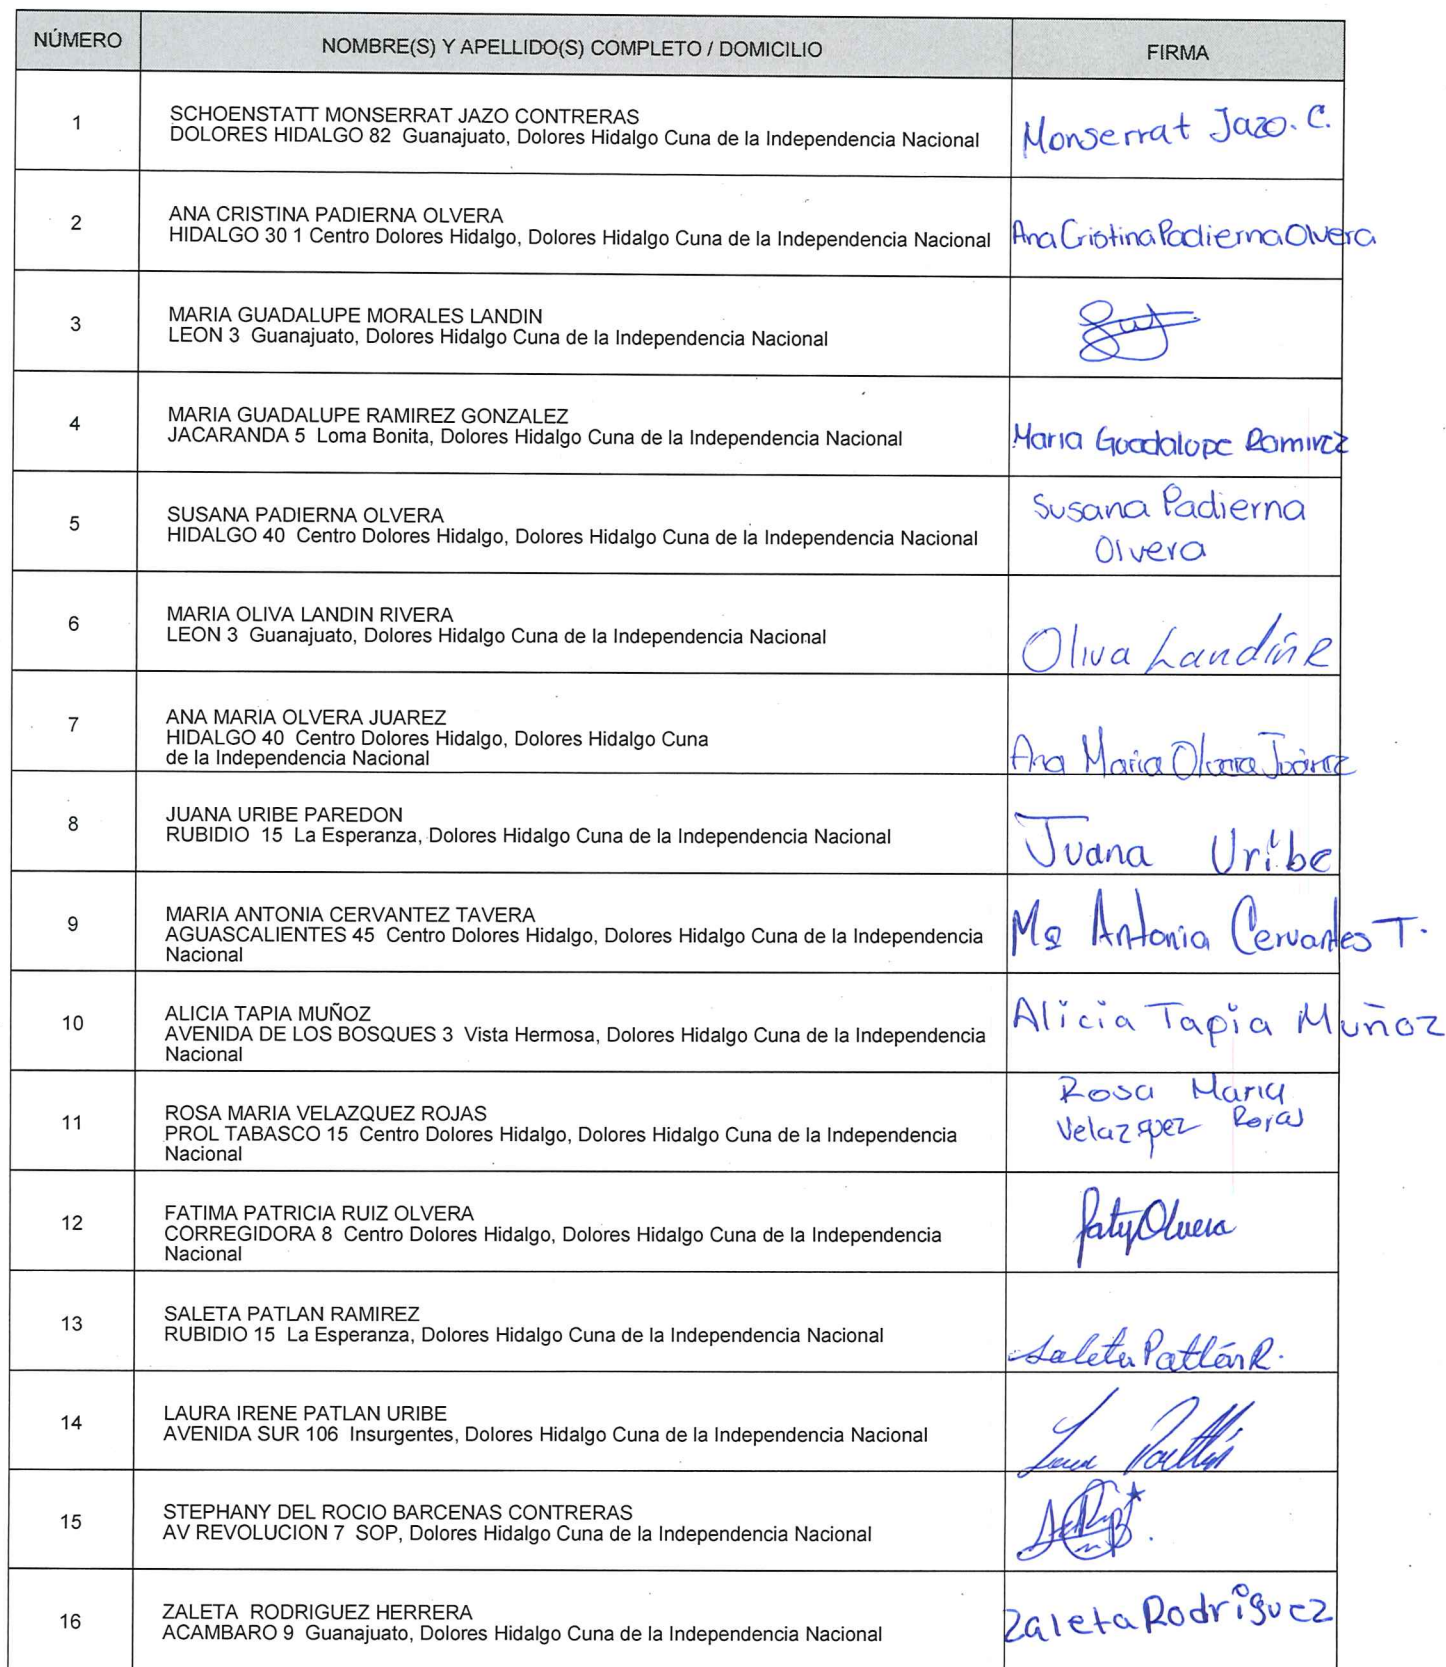 NÚMERO
NOMBRE(S) Y APELLIDO(S) COMPLETO / DOMICILIO
FIRMA
1
SCHOENSTATT MONSERRAT JAZO CONTRERAS
DOLORES HIDALGO 82 Guanajuato, Dolores Hidalgo Cuna de la Independencia Nacional
Monserrat Jazo. C.
2
ANA CRISTINA PADIERNA OLVERA
HIDALGO 30 1 Centro Dolores Hidalgo, Dolores Hidalgo Cuna de la Independencia Nacional
Ana Cristina Padierna Olvera
3
MARIA GUADALUPE MORALES LANDIN
LEON 3 Guanajuato, Dolores Hidalgo Cuna de la Independencia Nacional
4
MARIA GUADALUPE RAMIREZ GONZALEZ
JACARANDA 5 Loma Bonita, Dolores Hidalgo Cuna de la Independencia Nacional
Maria Guadalupe Ramirez
5
SUSANA PADIERNA OLVERA
HIDALGO 40 Centro Dolores Hidalgo, Dolores Hidalgo Cuna de la Independencia Nacional
Susana Padierna
Olvera
6
MARIA OLIVA LANDIN RIVERA
LEON 3 Guanajuato, Dolores Hidalgo Cuna de la Independencia Nacional
Oliva Landín R
7
ANA MARIA OLVERA JUAREZ
HIDALGO 40 Centro Dolores Hidalgo, Dolores Hidalgo Cuna
de la Independencia Nacional
Ana Maria Olvera Juárez
8
JUANA URIBE PAREDON
RUBIDIO 15 La Esperanza, Dolores Hidalgo Cuna de la Independencia Nacional
Juana Uribe
9
MARIA ANTONIA CERVANTEZ TAVERA
AGUASCALIENTES 45 Centro Dolores Hidalgo, Dolores Hidalgo Cuna de la Independencia
Nacional
Ma Antonia Cervantes T.
10
ALICIA TAPIA MUÑOZ
AVENIDA DE LOS BOSQUES 3 Vista Hermosa, Dolores Hidalgo Cuna de la Independencia
Nacional
Alicia Tapia Muñoz
11
ROSA MARIA VELAZQUEZ ROJAS
PROL TABASCO 15 Centro Dolores Hidalgo, Dolores Hidalgo Cuna de la Independencia
Nacional
Rosa Maria
Velazquez Rojas
12
FATIMA PATRICIA RUIZ OLVERA
CORREGIDORA 8 Centro Dolores Hidalgo, Dolores Hidalgo Cuna de la Independencia
Nacional
Paty Olvera
13
SALETA PATLAN RAMIREZ
RUBIDIO 15 La Esperanza, Dolores Hidalgo Cuna de la Independencia Nacional
Saleta Patlán R.
14
LAURA IRENE PATLAN URIBE
AVENIDA SUR 106 Insurgentes, Dolores Hidalgo Cuna de la Independencia Nacional
Laura Patlán
15
STEPHANY DEL ROCIO BARCENAS CONTRERAS
AV REVOLUCION 7 SOP, Dolores Hidalgo Cuna de la Independencia Nacional
16
ZALETA RODRIGUEZ HERRERA
ACAMBARO 9 Guanajuato, Dolores Hidalgo Cuna de la Independencia Nacional
Zaleta Rodriguez